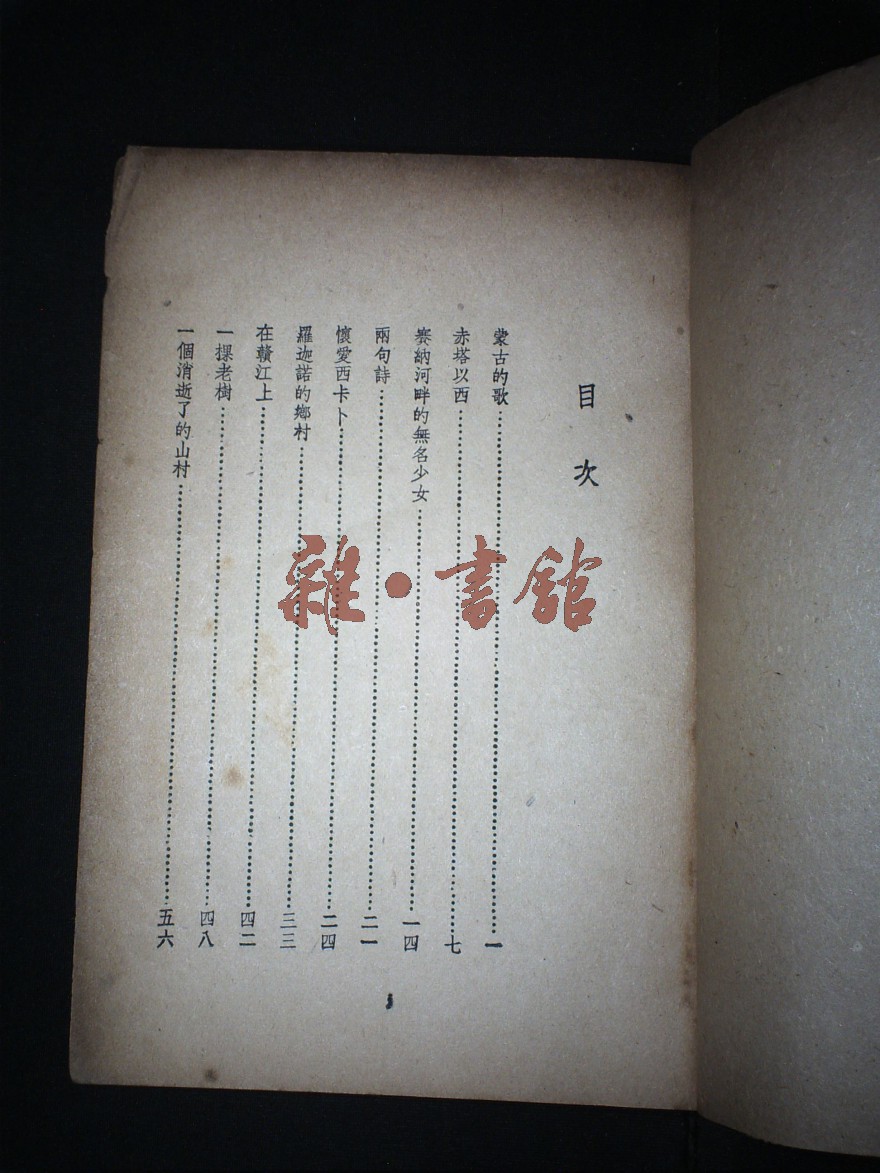 目次
蒙古的歌……一
赤塔以西……七
賽納河畔的無名少女……一四
兩句詩……二一
懷愛西卡卜……二四
羅迦諾的鄉村……三三
在贛江上……四二
一棵老樹……四八
一個消逝了的山村……五六
雜·書館